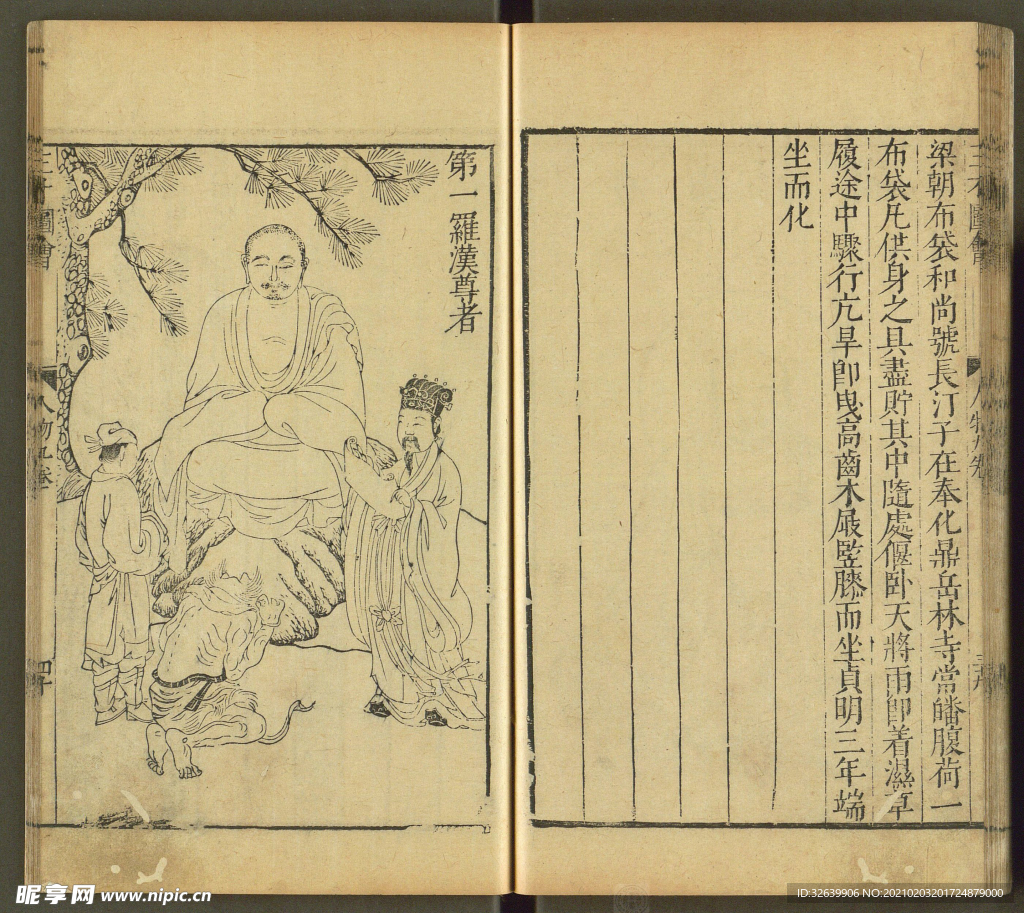 梁朝布袋和尚號長汀子在奉化鼎岳林寺常皤腹荷一
布袋凡供身之具盡貯其中隨處偃卧天將雨即着濕草
履途中驟行亢旱卽曳高齒木屐竪膝而坐貞明三年端
坐而化
第一羅漢尊者
三才圖會
人物九卷
四十
昵享网 www.nipic.cn
ID:32639906 NO:20210203201724879000